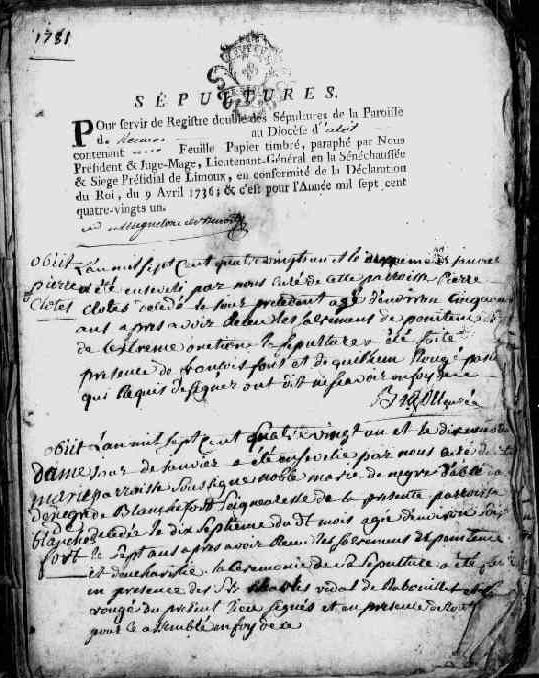 1781
SÉPULTURES.
POur servir de Registre double des Sépultures de la Paroisse
de au Diocése d'alet
contenant Feuille Papier timbré, paraphé par Nous
Président & Juge-Mage, Lieutenant-Général en la Sénéchaussée
& Siege Présidial de Limoux, en conformité de la Déclaration
du Roi, du 9 Avril 1736; & c'est pour l'Année mil sept cent
quatre-vingts un.
obiit L'an mil sept cent quatre vingt un et le janvier
pierre a été enseveli par nous curé de cette parroisse Pierre
Clotes Clotes décédé le jour précédent agé d'environ cinquante
ans apres avoir recu les sacremens de penitence
de l'extreme onction la sépulture a été faite
presence de francois fort et de guilheun Rougé
qui Requis de signer ont dit ne scavoir en foy de ce
curé
obiit L'an mil sept cent quatre vingt un et le
dame jour de janvier a été ensevelie par nous curé de
marie parroisse soussigné noble marie de negre d'able
de negre de Blanchefort de la presente parroisse
blanche décédée le dix septieme du dt mois agée d'environ
fort sept ans apres avoir Recu les sacremens de penitence
et d'eucharistie la ceremonie de sa sepulture a été
en presence des Srs charles vidal de Rabouillet
rougé du present lieu signés et en presence de
pour ce assemblé en foy de ce